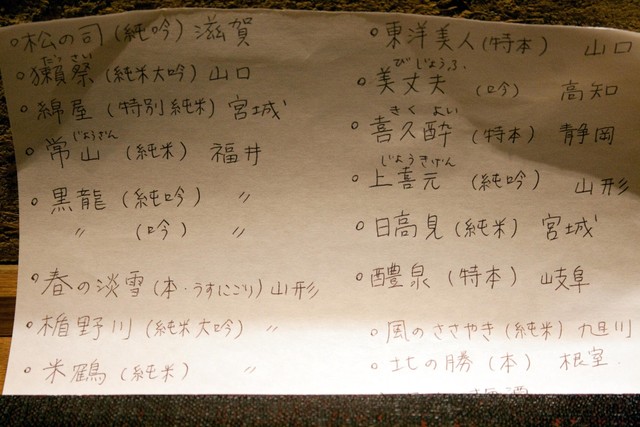 ○松の司(純吟) 滋賀
だっさい
○獺祭(純米大吟) 山口
○綿屋(特別純米) 宮城
じょうざん
○常山(純米) 福井
○黒龍(純吟) 〃
〃 (吟) 〃
○春の淡雪(本・うすにごり)山形
○楯野川(純米大吟) 〃
○米鶴(純米) 〃
○東洋美人(特本) 山口
びじょうふ
○美丈夫(吟) 高知
きくよい
○喜久酔(特本) 静岡
じょうきげん
○上喜元(純吟) 山形
○日高見(純米) 宮城
○醴泉(特本) 岐阜
○風のささやき(純米) 旭川
○北の勝(本) 根室
梅酒